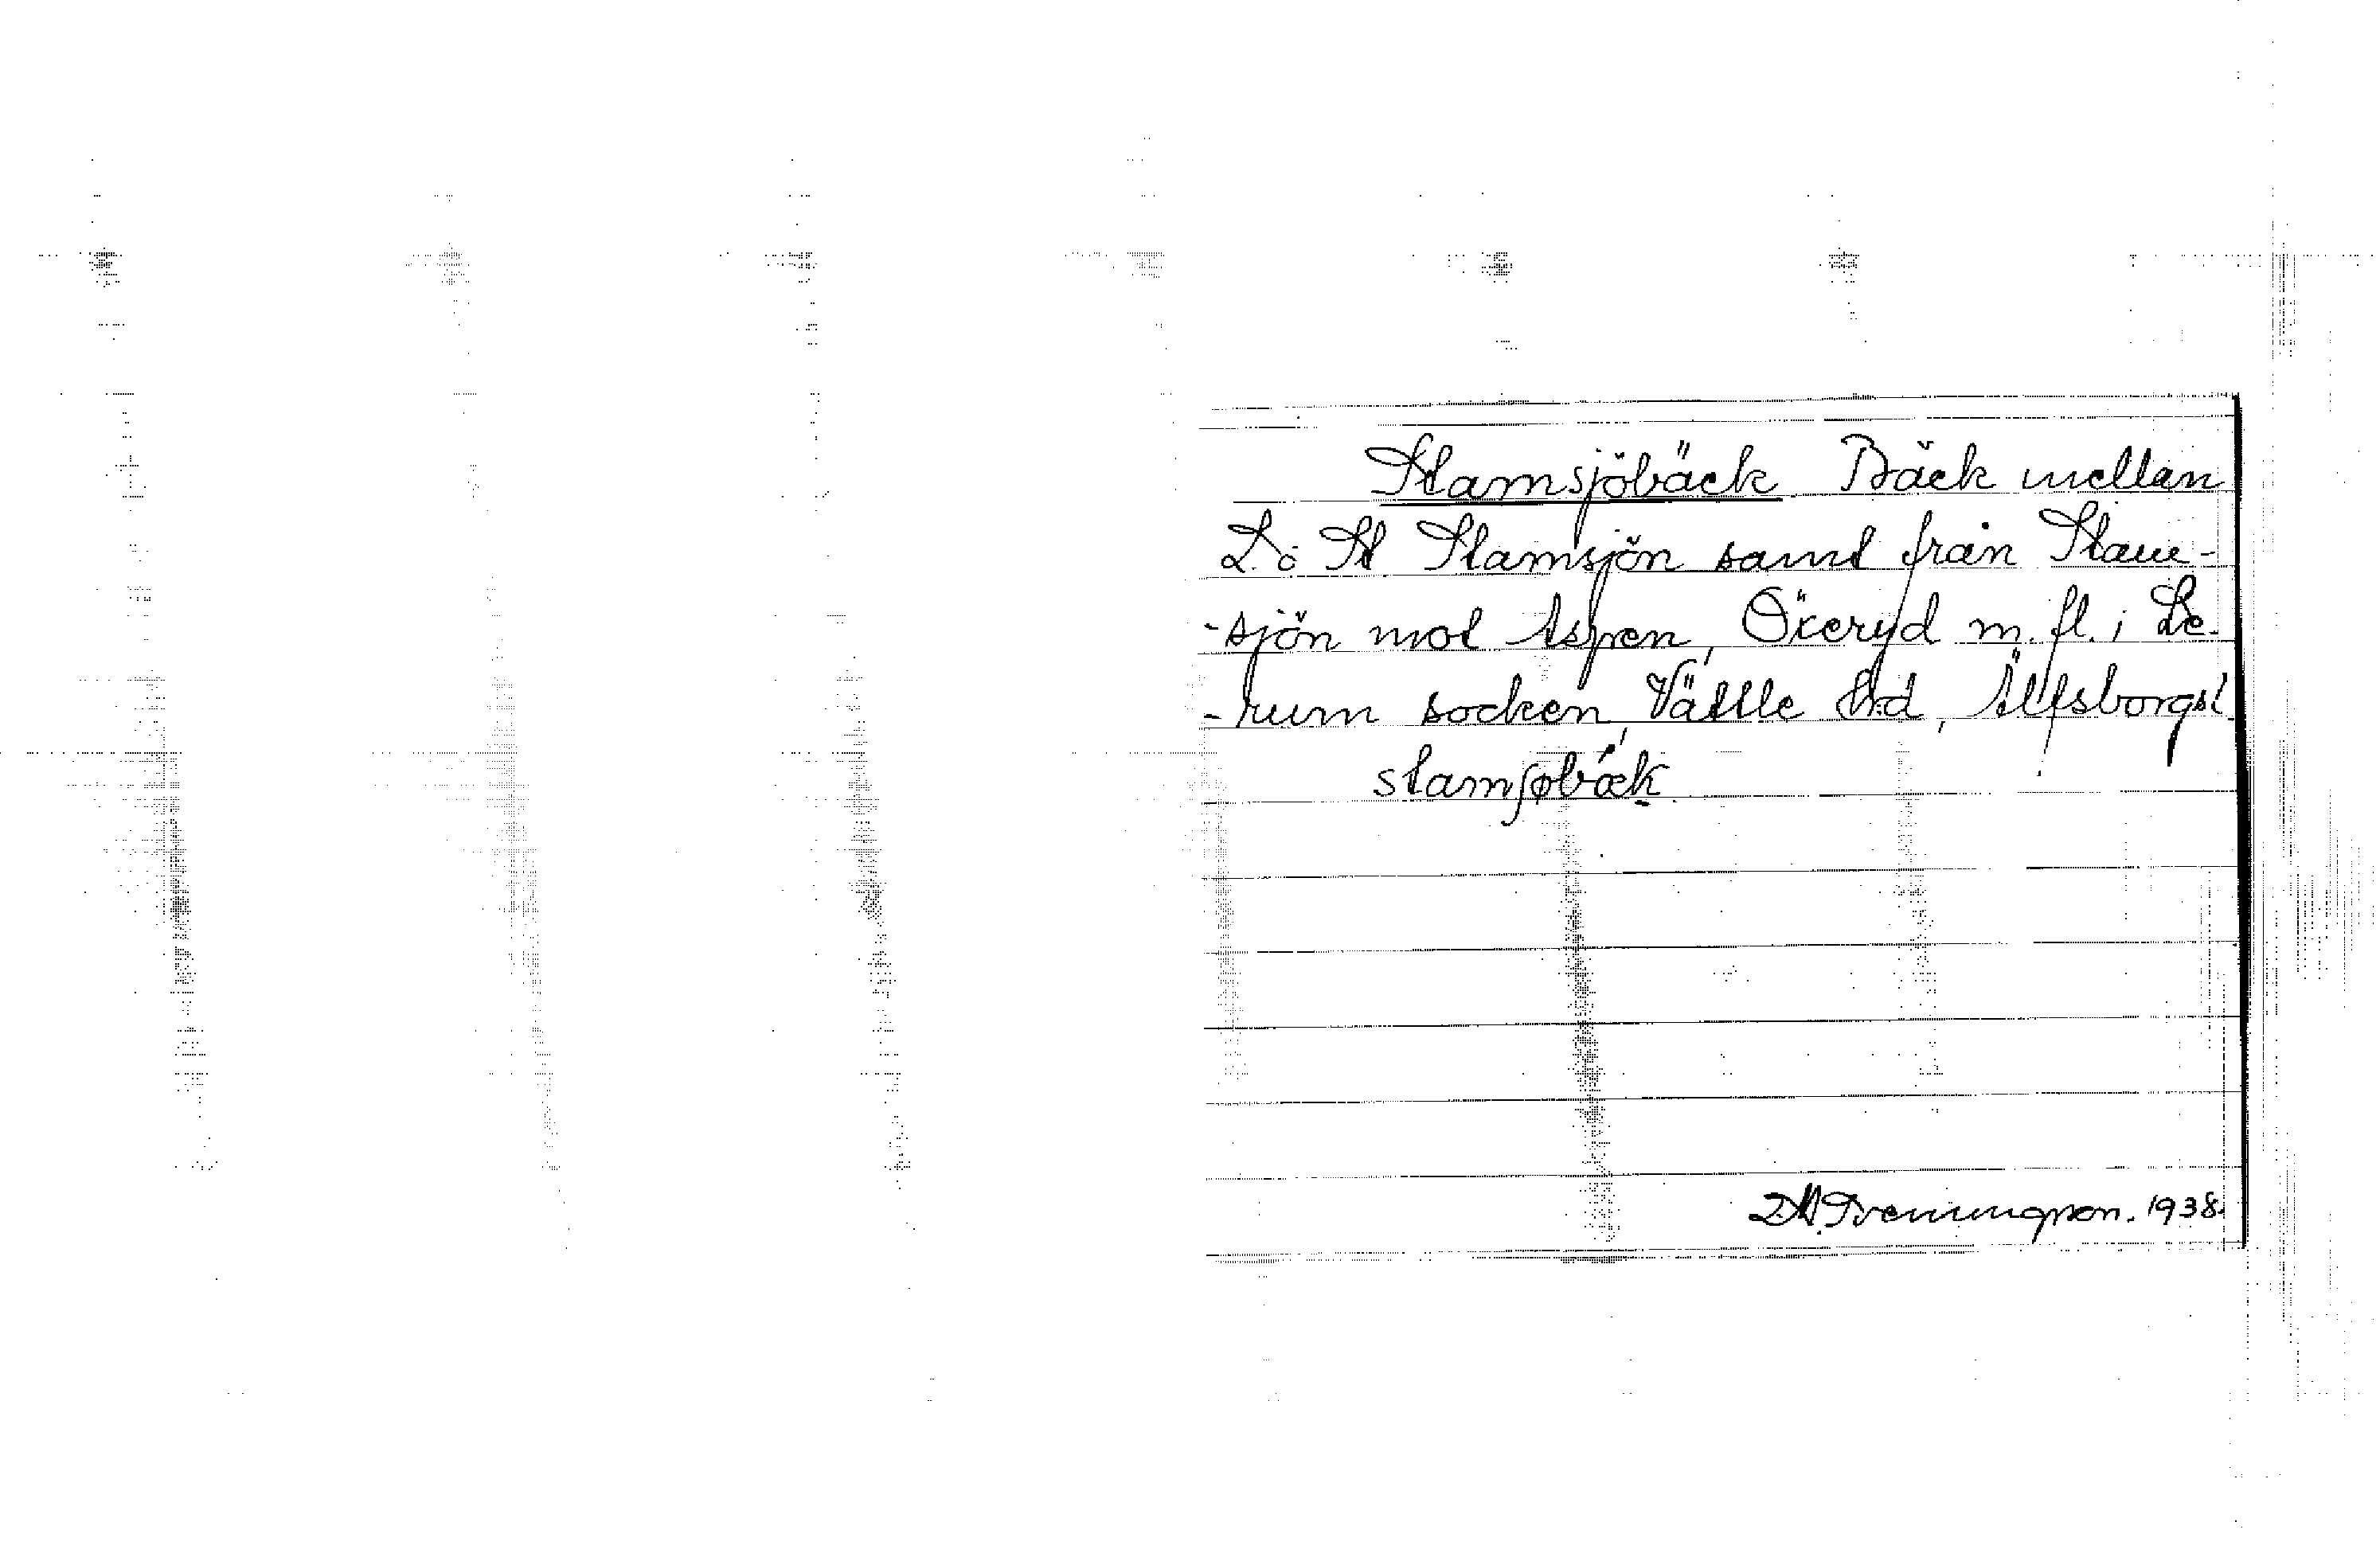 Stamsjöbäck Bäck mellan
L. o St Stamsjön samt från Stam-
-sjön mot Aspen, Öxeryd m. fl. i Le-
-rum socken, Vättle hrd, Älfsborgs l.
stamʃøbæk.
1938.